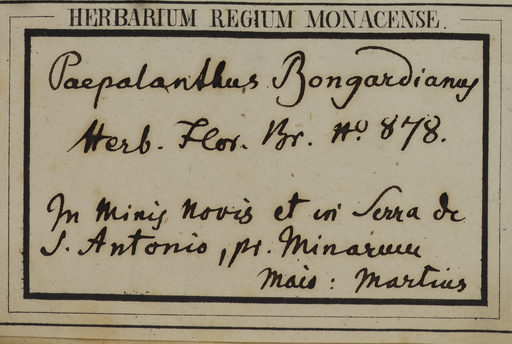 HERBARIUM REGIUM MONACENSE.
Paepalanthus Bongardianus
Herb. Flor. Br. No 878.
In Minis novis et in Serra de
S. Antonio, pr. Minarum
Maio: Martius